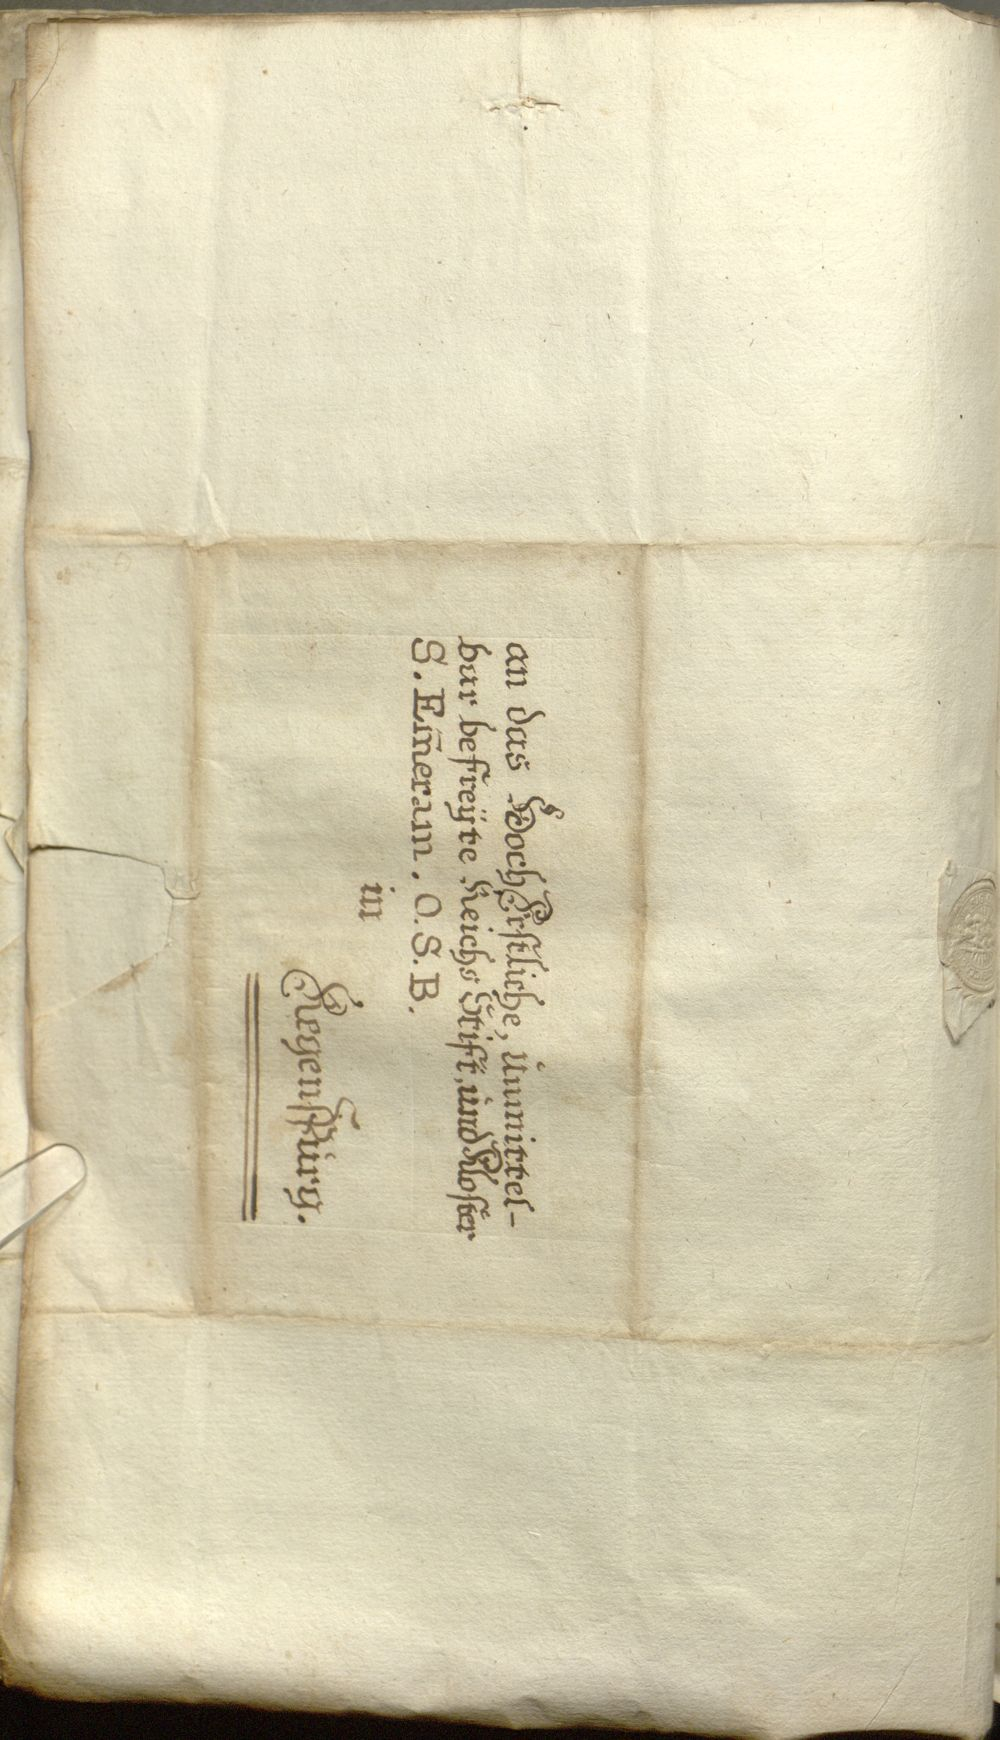 an das HochFrstliche, Unmittel-
bar befreÿte Reichs Stift, und Kloster
S. Em̅eram. O. S. B.
in
RegenSPurg.